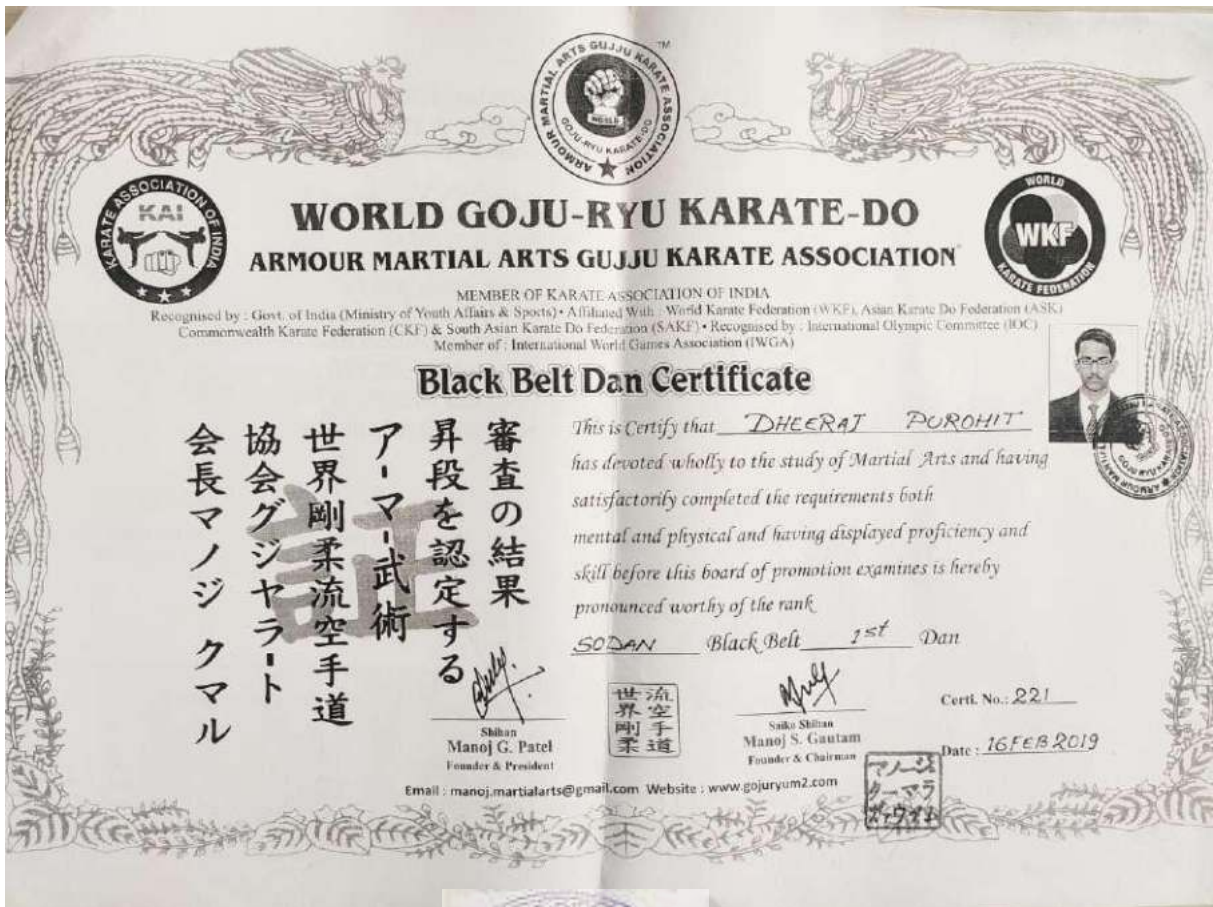 ARMOUR MARTIAL ARTS GUJJU KARATE ASSOCIATION
TM
GOJU-RYU KARATE-DO
KARATE ASSOCIATION OF INDIA
KAI
WORLD
WKF
KARATE FEDERATION
WORLD GOJU-RYU KARATE-DO
ARMOUR MARTIAL ARTS GUJJU KARATE ASSOCIATION
MEMBER OF KARATE ASSOCIATION OF INDIA
Recognised by : Govt. of India (Ministry of Youth Affairs & Sports) • Affiliated With : World Karate Federation (WKF), Asian Karate Do Federation (ASK)
Commonwealth Karate Federation (CKF) & South Asian Karate Do Federation (SAKF) • Recognised by : International Olympic Committee (IOC)
Member of : International World Games Association (IWGA)
Black Belt Dan Certificate
審査の結果
昇段を認定する
アーマー武術
世界剛柔流空手道
協会グジャラート
会長マノジ クマル
証
This is Certify that DHEERAJ PUROHIT
has devoted wholly to the study of Martial Arts and having
satisfactorify completed the requirements both
mental and physical and having displayed proficiency and
skill before this board of promotion examines is hereby
pronounced worthy of the rank
SODAN Black Belt 1st Dan
Shihan
Manoj G. Patel
Founder & President
流空手道
世界剛柔
Saiko Shihan
Manoj S. Gautam
Founder & Chairman
Certi. No.: 221
Date : 16 FEB 2019
Email : manoj.martialarts@gmail.com Website : www.gojuryum2.com